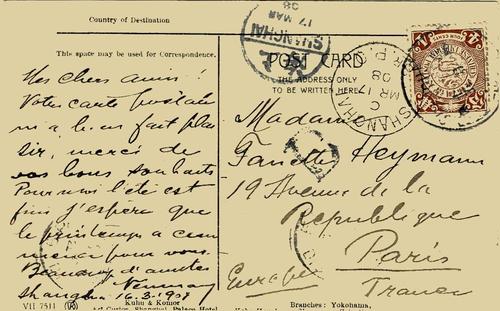 Country of Destination
This space may be used for Correspondence.
POST CARD
THE ADDRESS ONLY
TO BE WRITTEN HERE
SHANGHAI
17 MAR
08
SHANGHAI
MR 17
08
4
4
Mes chers amis!
Votre carte postale
m'a bien fait plai
sir, merci de
vos bons souhaits
Pour moi l'été est
fini j'espère que
le printemps a com
mencé pour vous.
Beaucoup d'amitiés
Shanghai 16.3.1908
Madame
Fanette Heymann
19 Avenue de la
Republique
Paris
France
Europe
VII 7511
Kuhn & Komor
Art Curios, Shanghai, Palace Hotel
Branches: Yokohama,